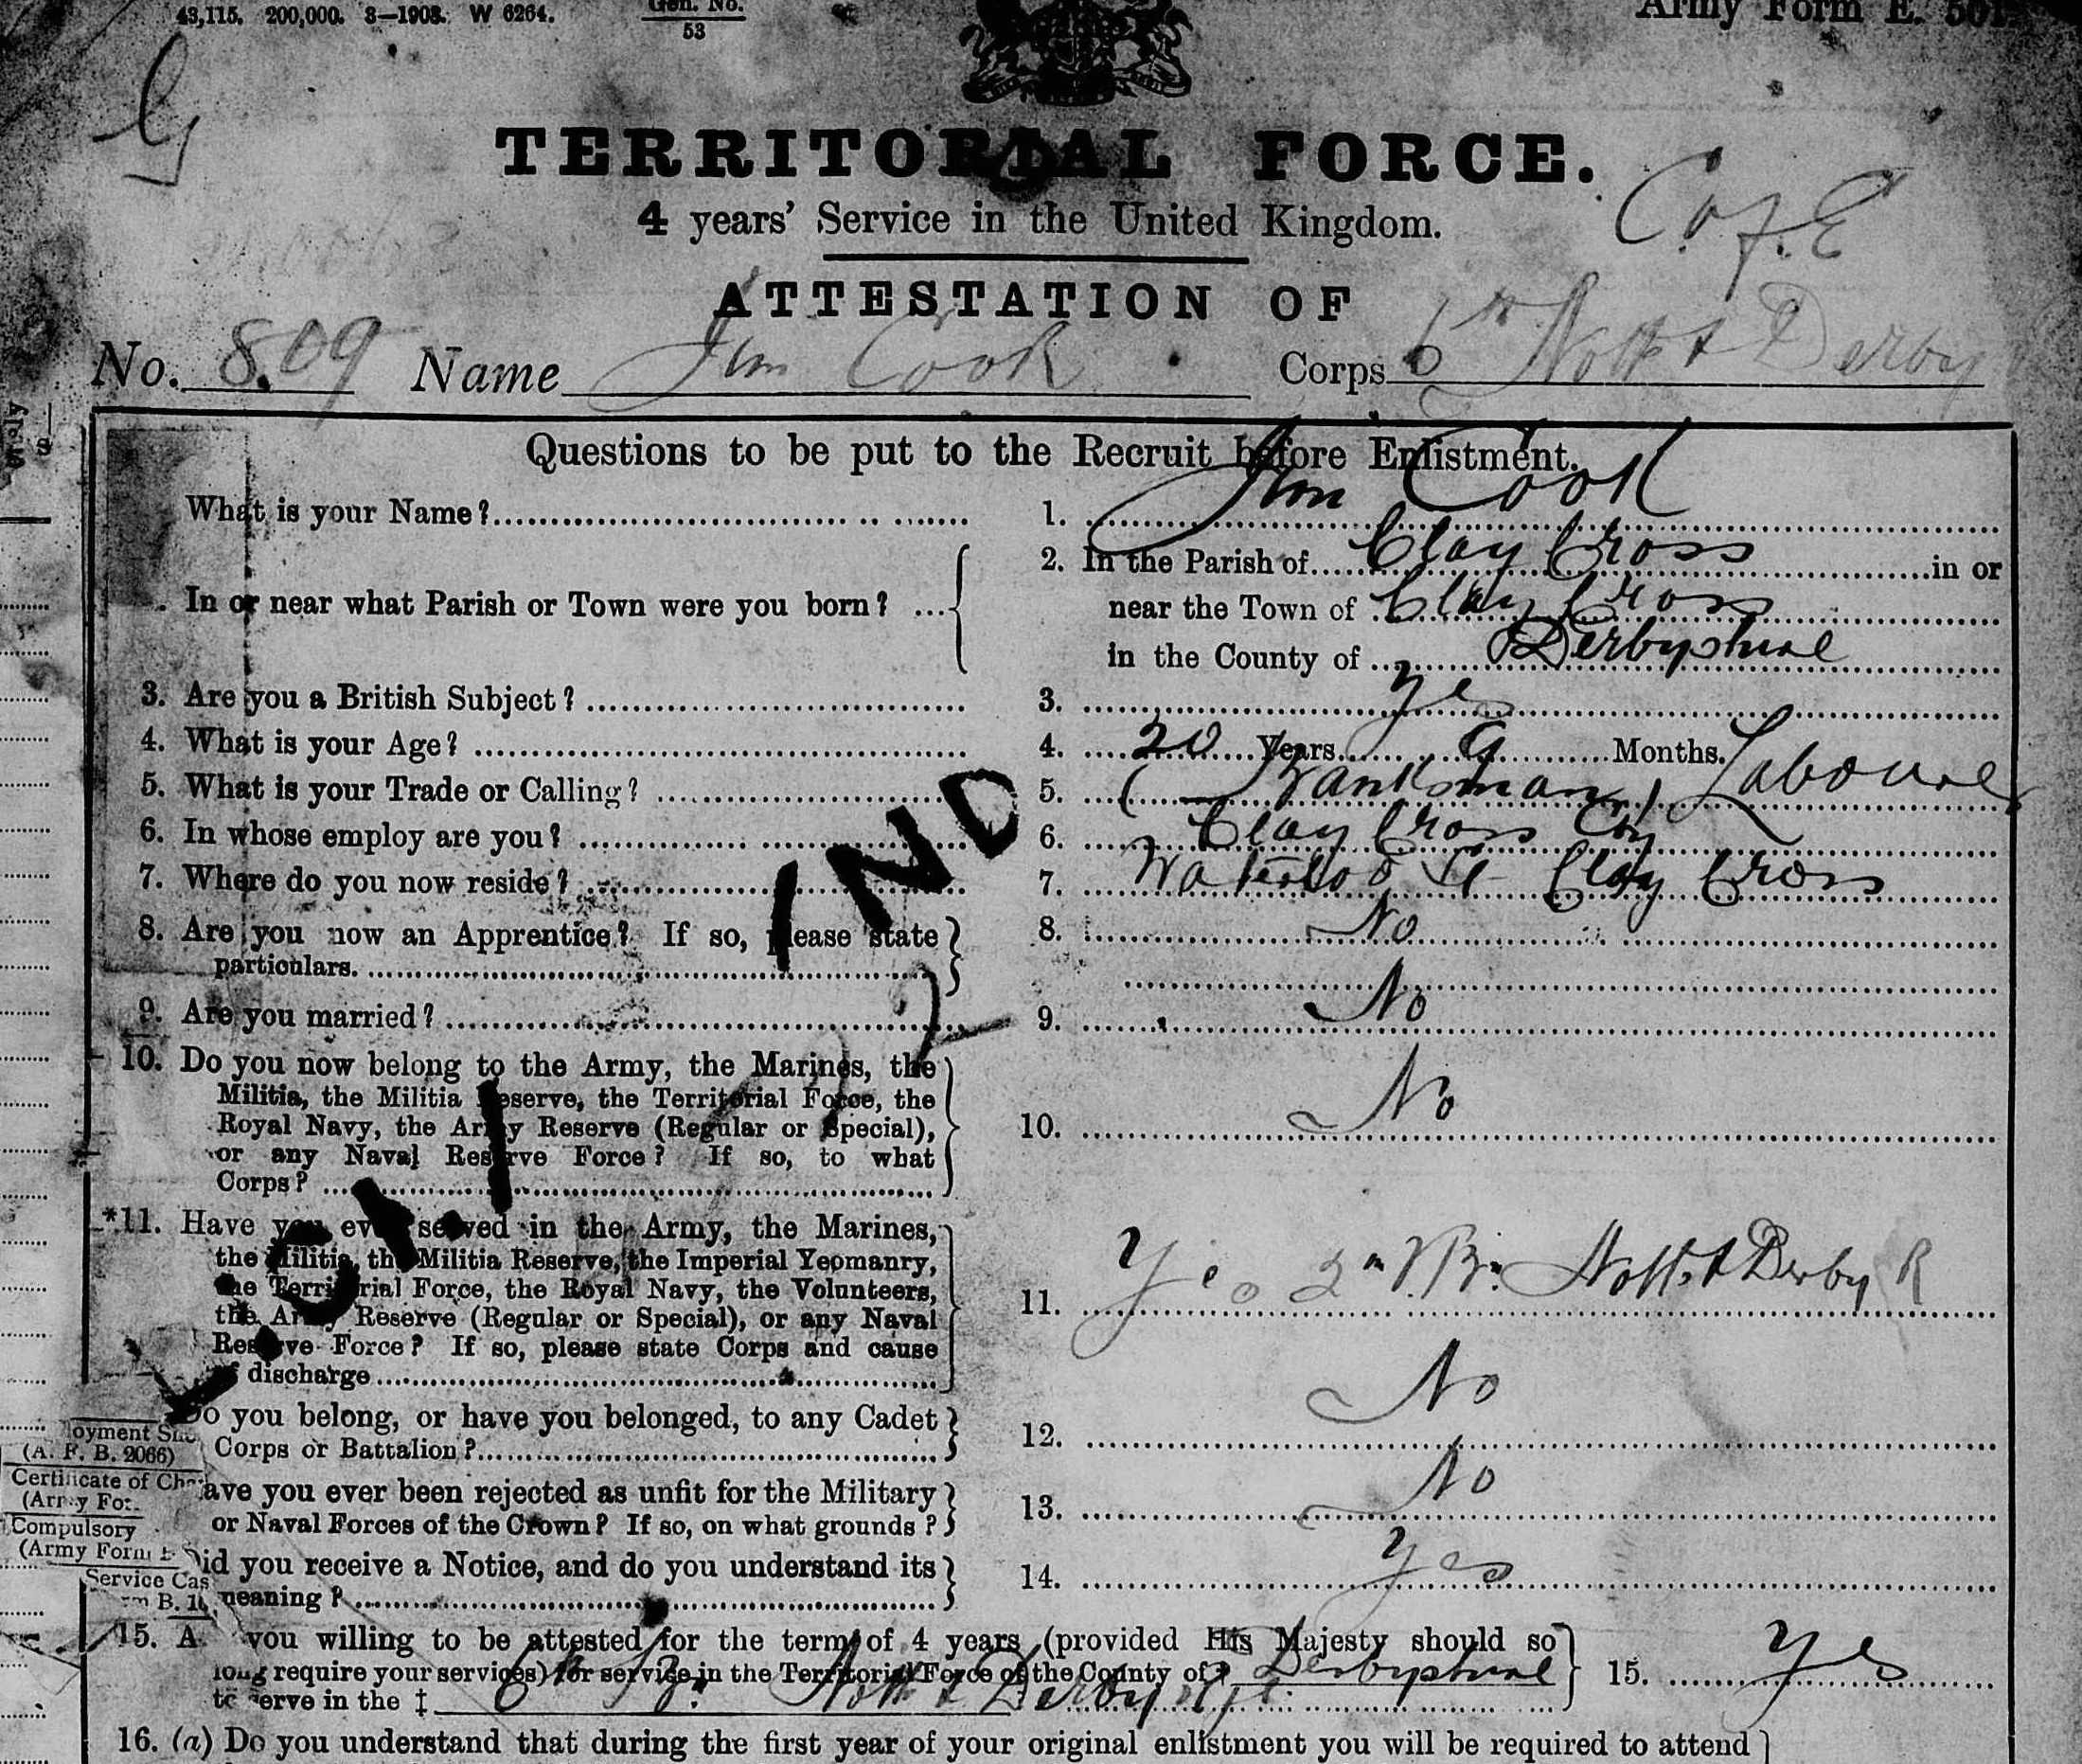 43,115. 200,000. 3—1908. W 6264. Gen. No. 53 Army Form E. 501.
TERRITORIAL FORCE.
C. of. E
4 years' Service in the United Kingdom.
ATTESTATION OF
No. 809 Name Jim Cook Corps 6th Notts & Derby
Questions to be put to the Recruit before Enlistment.
What is your Name? 1. Jim Cook
2. In the Parish of Clay Cross in or
In or near what Parish or Town were you born? near the Town of Clay Cross
in the County of Derbyshire
3. Are you a British Subject? 3. Yes
4. What is your Age? 4. 20 Years 9 Months.
5. What is your Trade or Calling? 5. (Banksman) Labourer
6. In whose employ are you? 6. Clay Cross Coy
7. Where do you now reside? 7. Waterloo St Clay Cross
8. Are you now an Apprentice? If so, please state 8. No
particulars.
9. Are you married? 9. No
10. Do you now belong to the Army, the Marines, the
Militia, the Militia Reserve, the Territorial Force, the
Royal Navy, the Army Reserve (Regular or Special), 10. No
or any Naval Reserve Force? If so, to what
Corps?
*11. Have you ever served in the Army, the Marines,
the Militia, the Militia Reserve, the Imperial Yeomanry,
the Territorial Force, the Royal Navy, the Volunteers, 11. Yes 2n V. Bn. Notts & Derby R
the Army Reserve (Regular or Special), or any Naval
Reserve Force? If so, please state Corps and cause
of discharge
Do you belong, or have you belonged, to any Cadet
Corps or Battalion? 12. No
ave you ever been rejected as unfit for the Military
or Naval Forces of the Crown? If so, on what grounds? 13. No
id you receive a Notice, and do you understand its 14. Yes
meaning?
oyment
(A. F. B. 2066)
Certificate of
(Army
Compulsory
(Army Form
Service
B.
15. A you willing to be attested for the term of 4 years (provided His Majesty should so
long require your services) for service in the Territorial Force of the County of Derbyshire 15. Yes
to serve in the ‡ 6th Bn. Notts & Derby Rgt.
16. (a) Do you understand that during the first year of your original enlistment you will be required to attend
IND